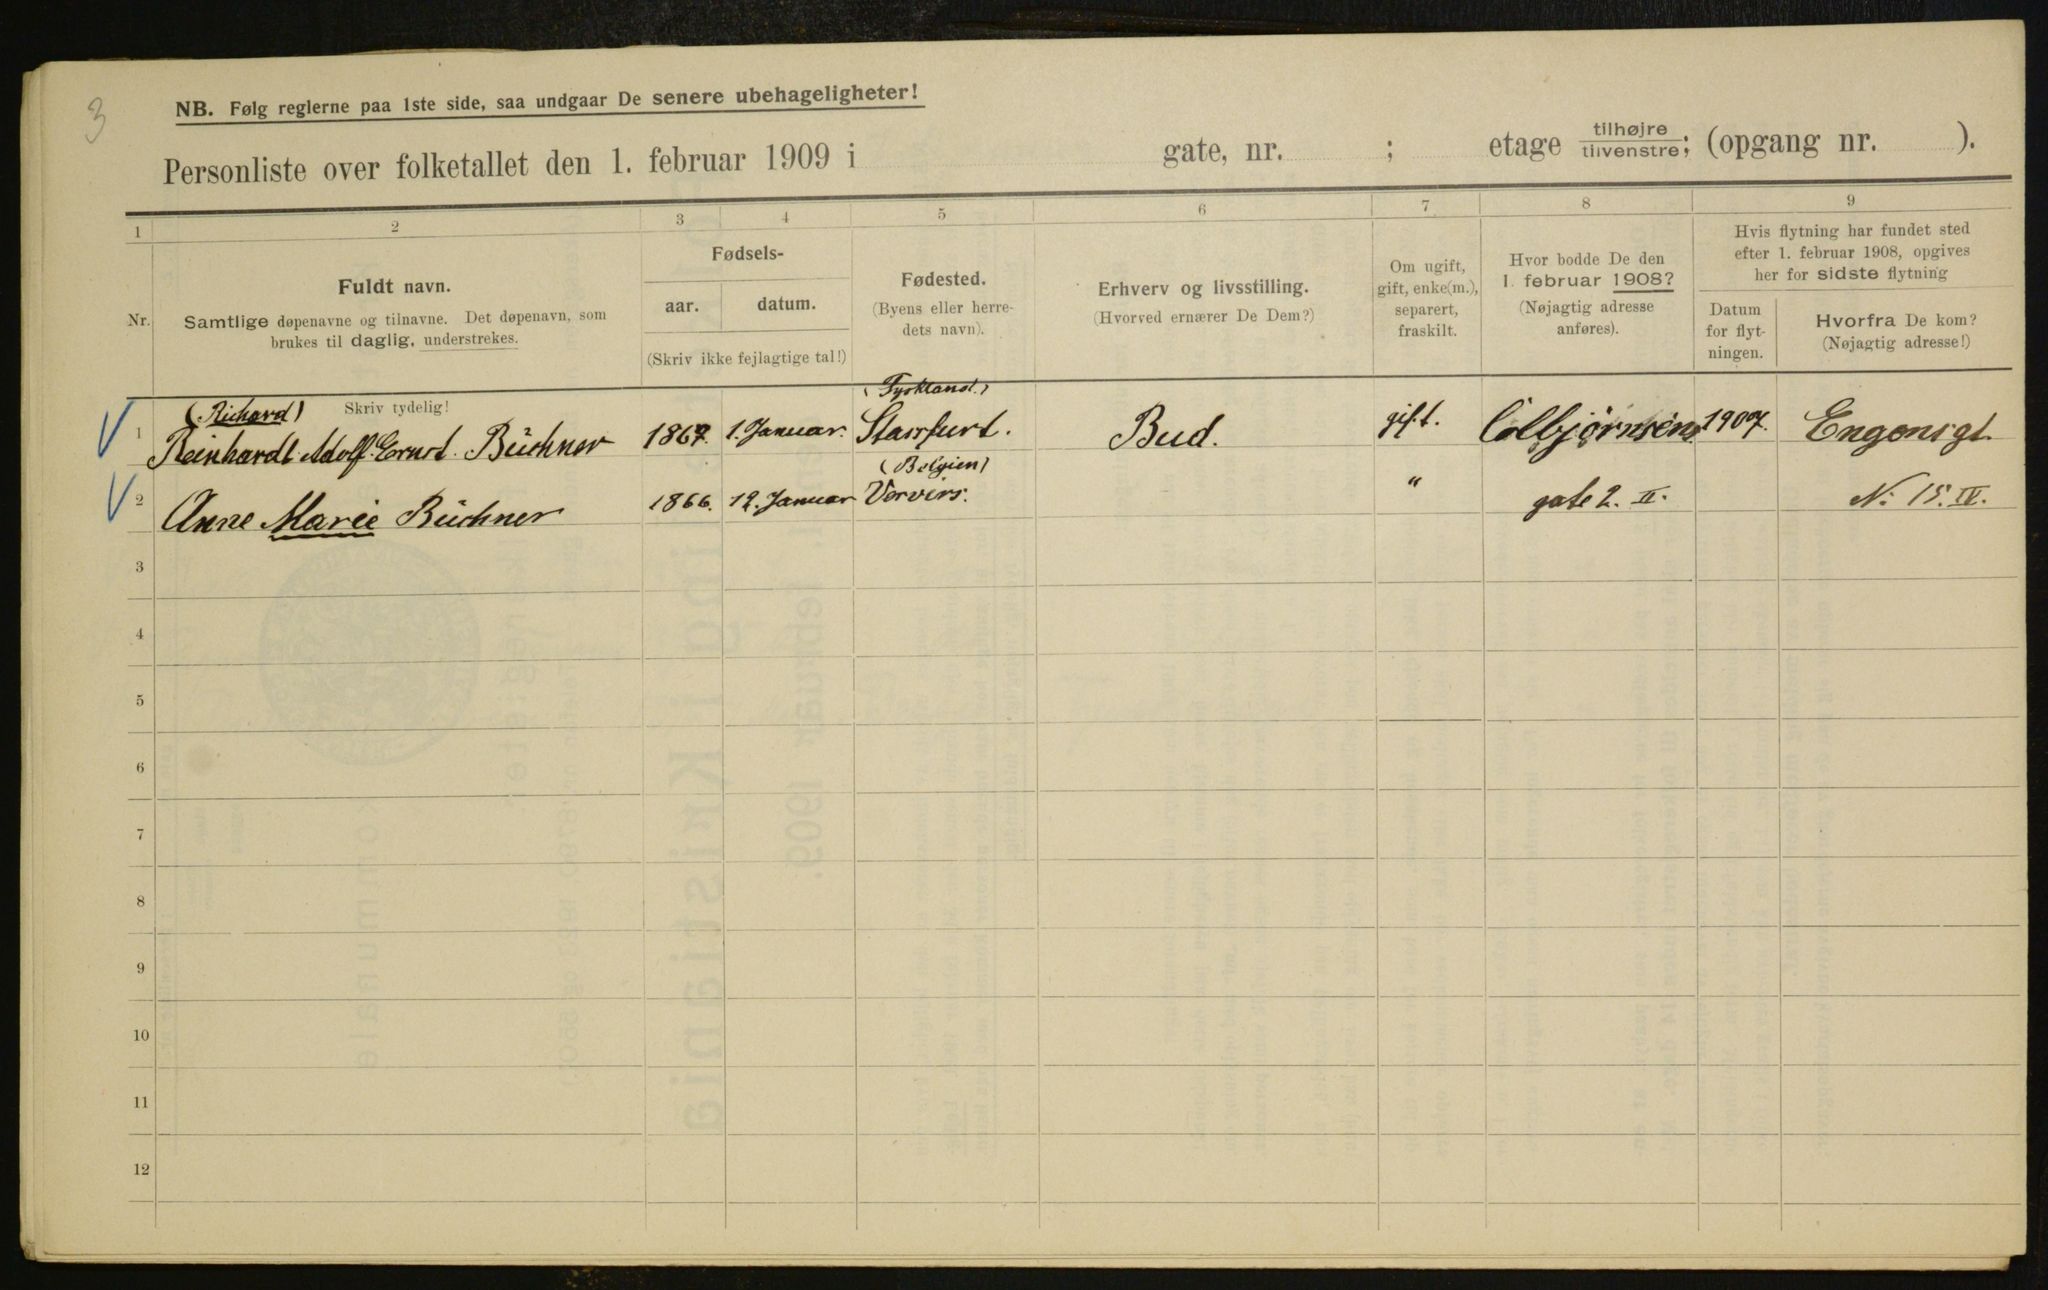 3
NB. Følg reglerne paa 1ste side, saa undgaar De senere ubehageligheter!
Personliste over folketallet den 1. februar 1909 i gate, nr. ; etage tilhøjre tilvenstre; (opgang nr. ).
1 2 3 4 5 6 7 8 9
Nr.
Fuldt navn.
Samtlige døpenavne og tilnavne. Det døpenavn, som
brukes til daglig, understrekes.
Fødsels-
aar. datum.
(Skriv ikke fejlagtige tal!)
Fødested.
(Byens eller herre-
dets navn).
Erhverv og livsstilling.
(Hvorved ernærer De Dem?)
Om ugift,
gift, enke(m.),
separert,
fraskilt.
Hvor bodde De den
1. februar 1908?
(Nøjagtig adresse
anføres).
Hvis flytning har fundet sted
efter 1. februar 1908, opgives
her for sidste flytning
Datum
for flyt-
ningen.
Hvorfra De kom?
(Nøjagtig adresse!)
(Richard) Skriv tydelig! (Tyskland.)
1 Reinhardt Adolf Ernst Büchner 1867. 1. Januar. Stassfurt. Bud. gift. Colbjørnsens 1907. Engensgt.
(Belgien)
2 Anne Marie Büchner 1866. 12. Januar Vervirs. " gate 2. II. N: 15. IV.
3
4
5
6
7
8
9
10
11
12